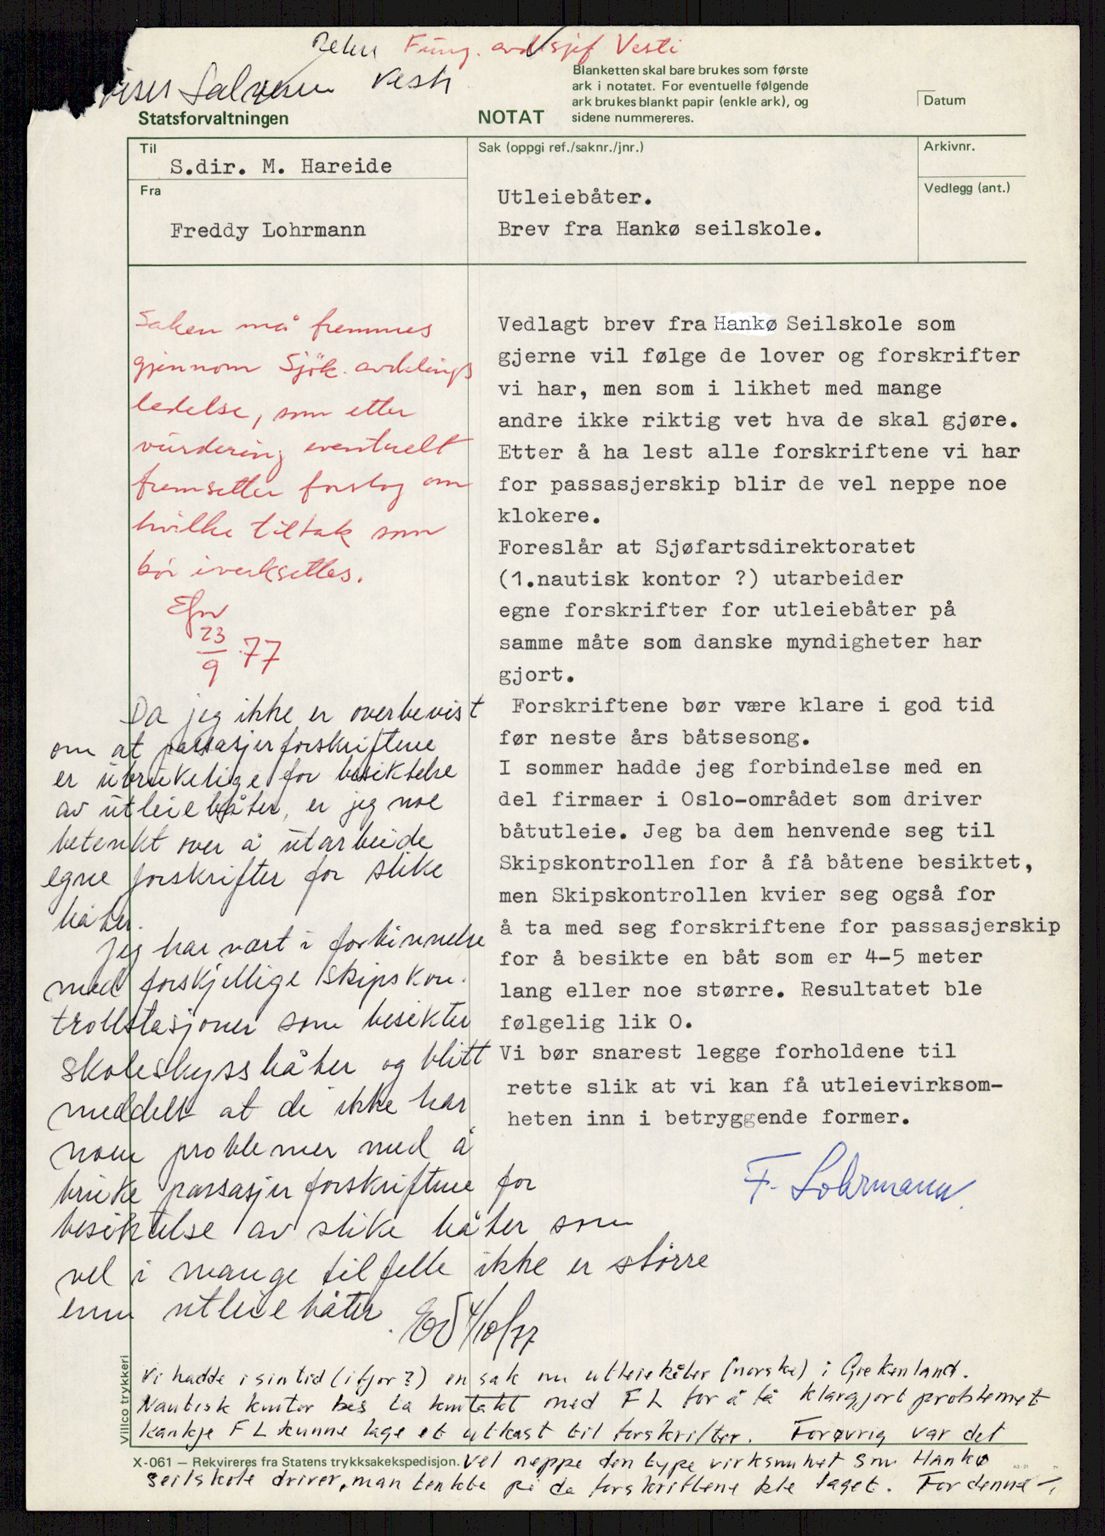 Fung. avd sjef Vesti
Vesti
Blanketten skal bare brukes som første
ark i notatet. For eventuelle følgende
ark brukes blankt papir (enkle ark), og
sidene nummereres.
Datum
Statsforvaltningen
NOTAT
Til
S.dir. M. Hareide
Sak (oppgi ref./saknr./jnr.)
Arkivnr.
Fra
Freddy Lohrmann
Utleiebåter.
Brev fra Hankø seilskole.
Vedlegg (ant.)
Saken må fremmes
gjennom Sjök. avdelings
ledelse, som etter
vurdering eventuelt
fremsetter forslag om
hvilke tiltak som
bör iverksettes.
23/9 77
Da jeg ikke er overbevist
om at passasjerforskriftene
er ubrukelige for besiktelse
av utleiebåter, er jeg noe
betenkt over å utarbeide
egne forskrifter for slike
båter.
Jeg har vært i forbinnelse
med forskjellige skipskon-
trollstasjoner som besikter
skoleskyssbåter og blitt
meddelt at de ikke har
noen problemer med å
bruke passasjerforskriftene for
besiktelse av slike båter som
vel i mange tilfelle ikke er större
enn utleiebåter.
4/10/77
Vedlagt brev fra Hankø Seilskole som
gjerne vil følge de lover og forskrifter
vi har, men som i likhet med mange
andre ikke riktig vet hva de skal gjøre.
Etter å ha lest alle forskriftene vi har
for passasjerskip blir de vel neppe noe
klokere.
Foreslår at Sjøfartsdirektoratet
(1.nautisk kontor ?) utarbeider
egne forskrifter for utleiebåter på
samme måte som danske myndigheter har
gjort.
Forskriftene bør være klare i god tid
før neste års båtsesong.
I sommer hadde jeg forbindelse med en
del firmaer i Oslo-området som driver
båtutleie. Jeg ba dem henvende seg til
Skipskontrollen for å få båtene besiktet,
men Skipskontrollen kvier seg også for
å ta med seg forskriftene for passasjerskip
for å besikte en båt som er 4-5 meter
lang eller noe større. Resultatet ble
følgelig lik O.
Vi bør snarest legge forholdene til
rette slik at vi kan få utleievirksom-
heten inn i betryggende former.
F. Lohrmann.
Vi hadde i sin tid (ifjor?) en sak om utleiebåter (norske) i Grekenland.
Nautisk kontor bes ta kontakt med F L for å få klargjort problemet
kanskje F L kunne lage et utkast til forskrifter. Forøvrig var det
Villco trykkeri
X-061 — Rekvireres fra Statens trykksakekspedisjon. vel neppe den type virksomhet som Hankø
Seilskole driver, man tenkte på da forskriftene ble laget. For denne -,